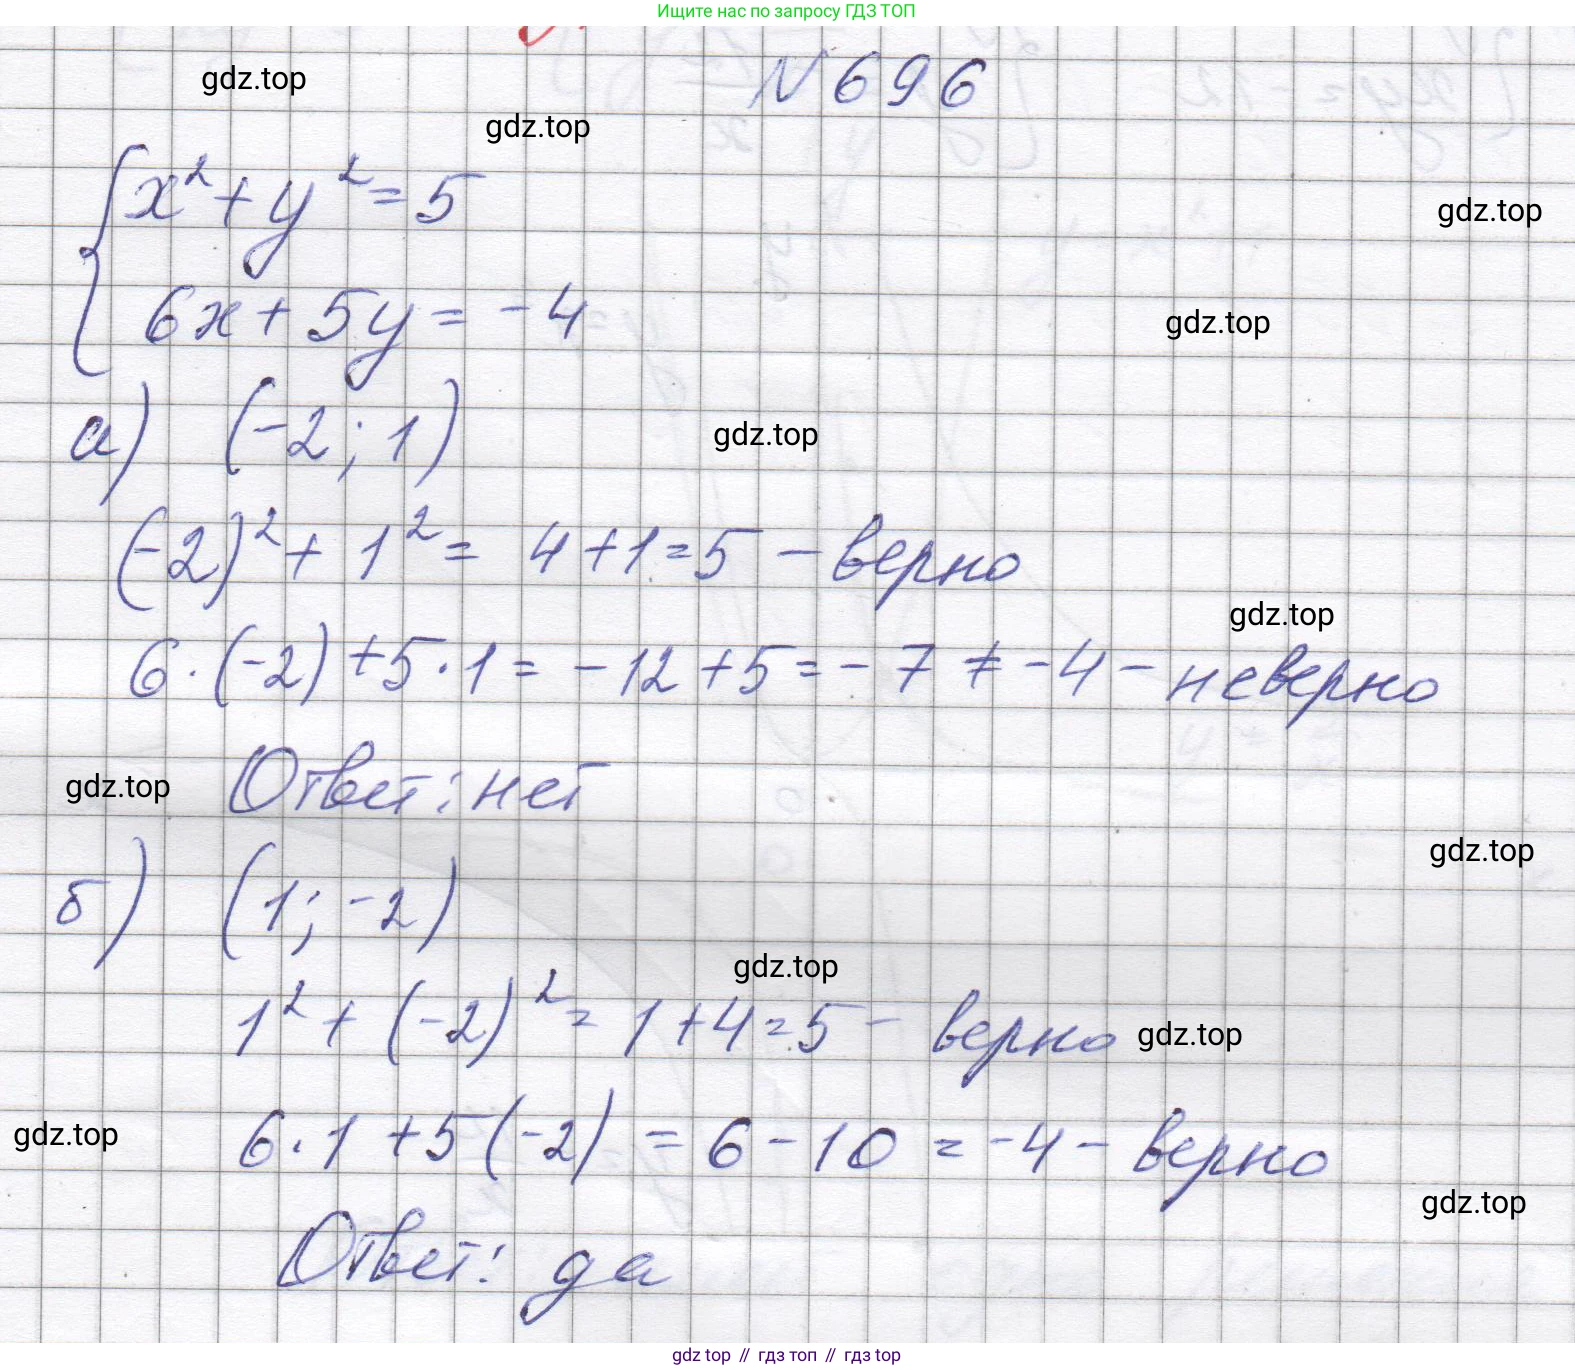 Ищите нас по запросу ГДЗ ТОП
N 696
gdz.top
gdz.top
x² + y² = 5
gdz.top
6x + 5y = -4
gdz.top
а) (-2; 1)
gdz.top
(-2)² + 1² = 4+1=5 – верно
gdz.top
6·(-2)+5·1 = -12+5=-7 ≠ -4 – неверно
gdz.top
Ответ: нет
gdz.top
б) (1; -2)
gdz.top
1² + (-2)² = 1+4=5 – верно
gdz.top
gdz.top
6·1 +5(-2) = 6-10 = -4 – верно
gdz.top
Ответ: да
gdz top // гдз топ // гдз top